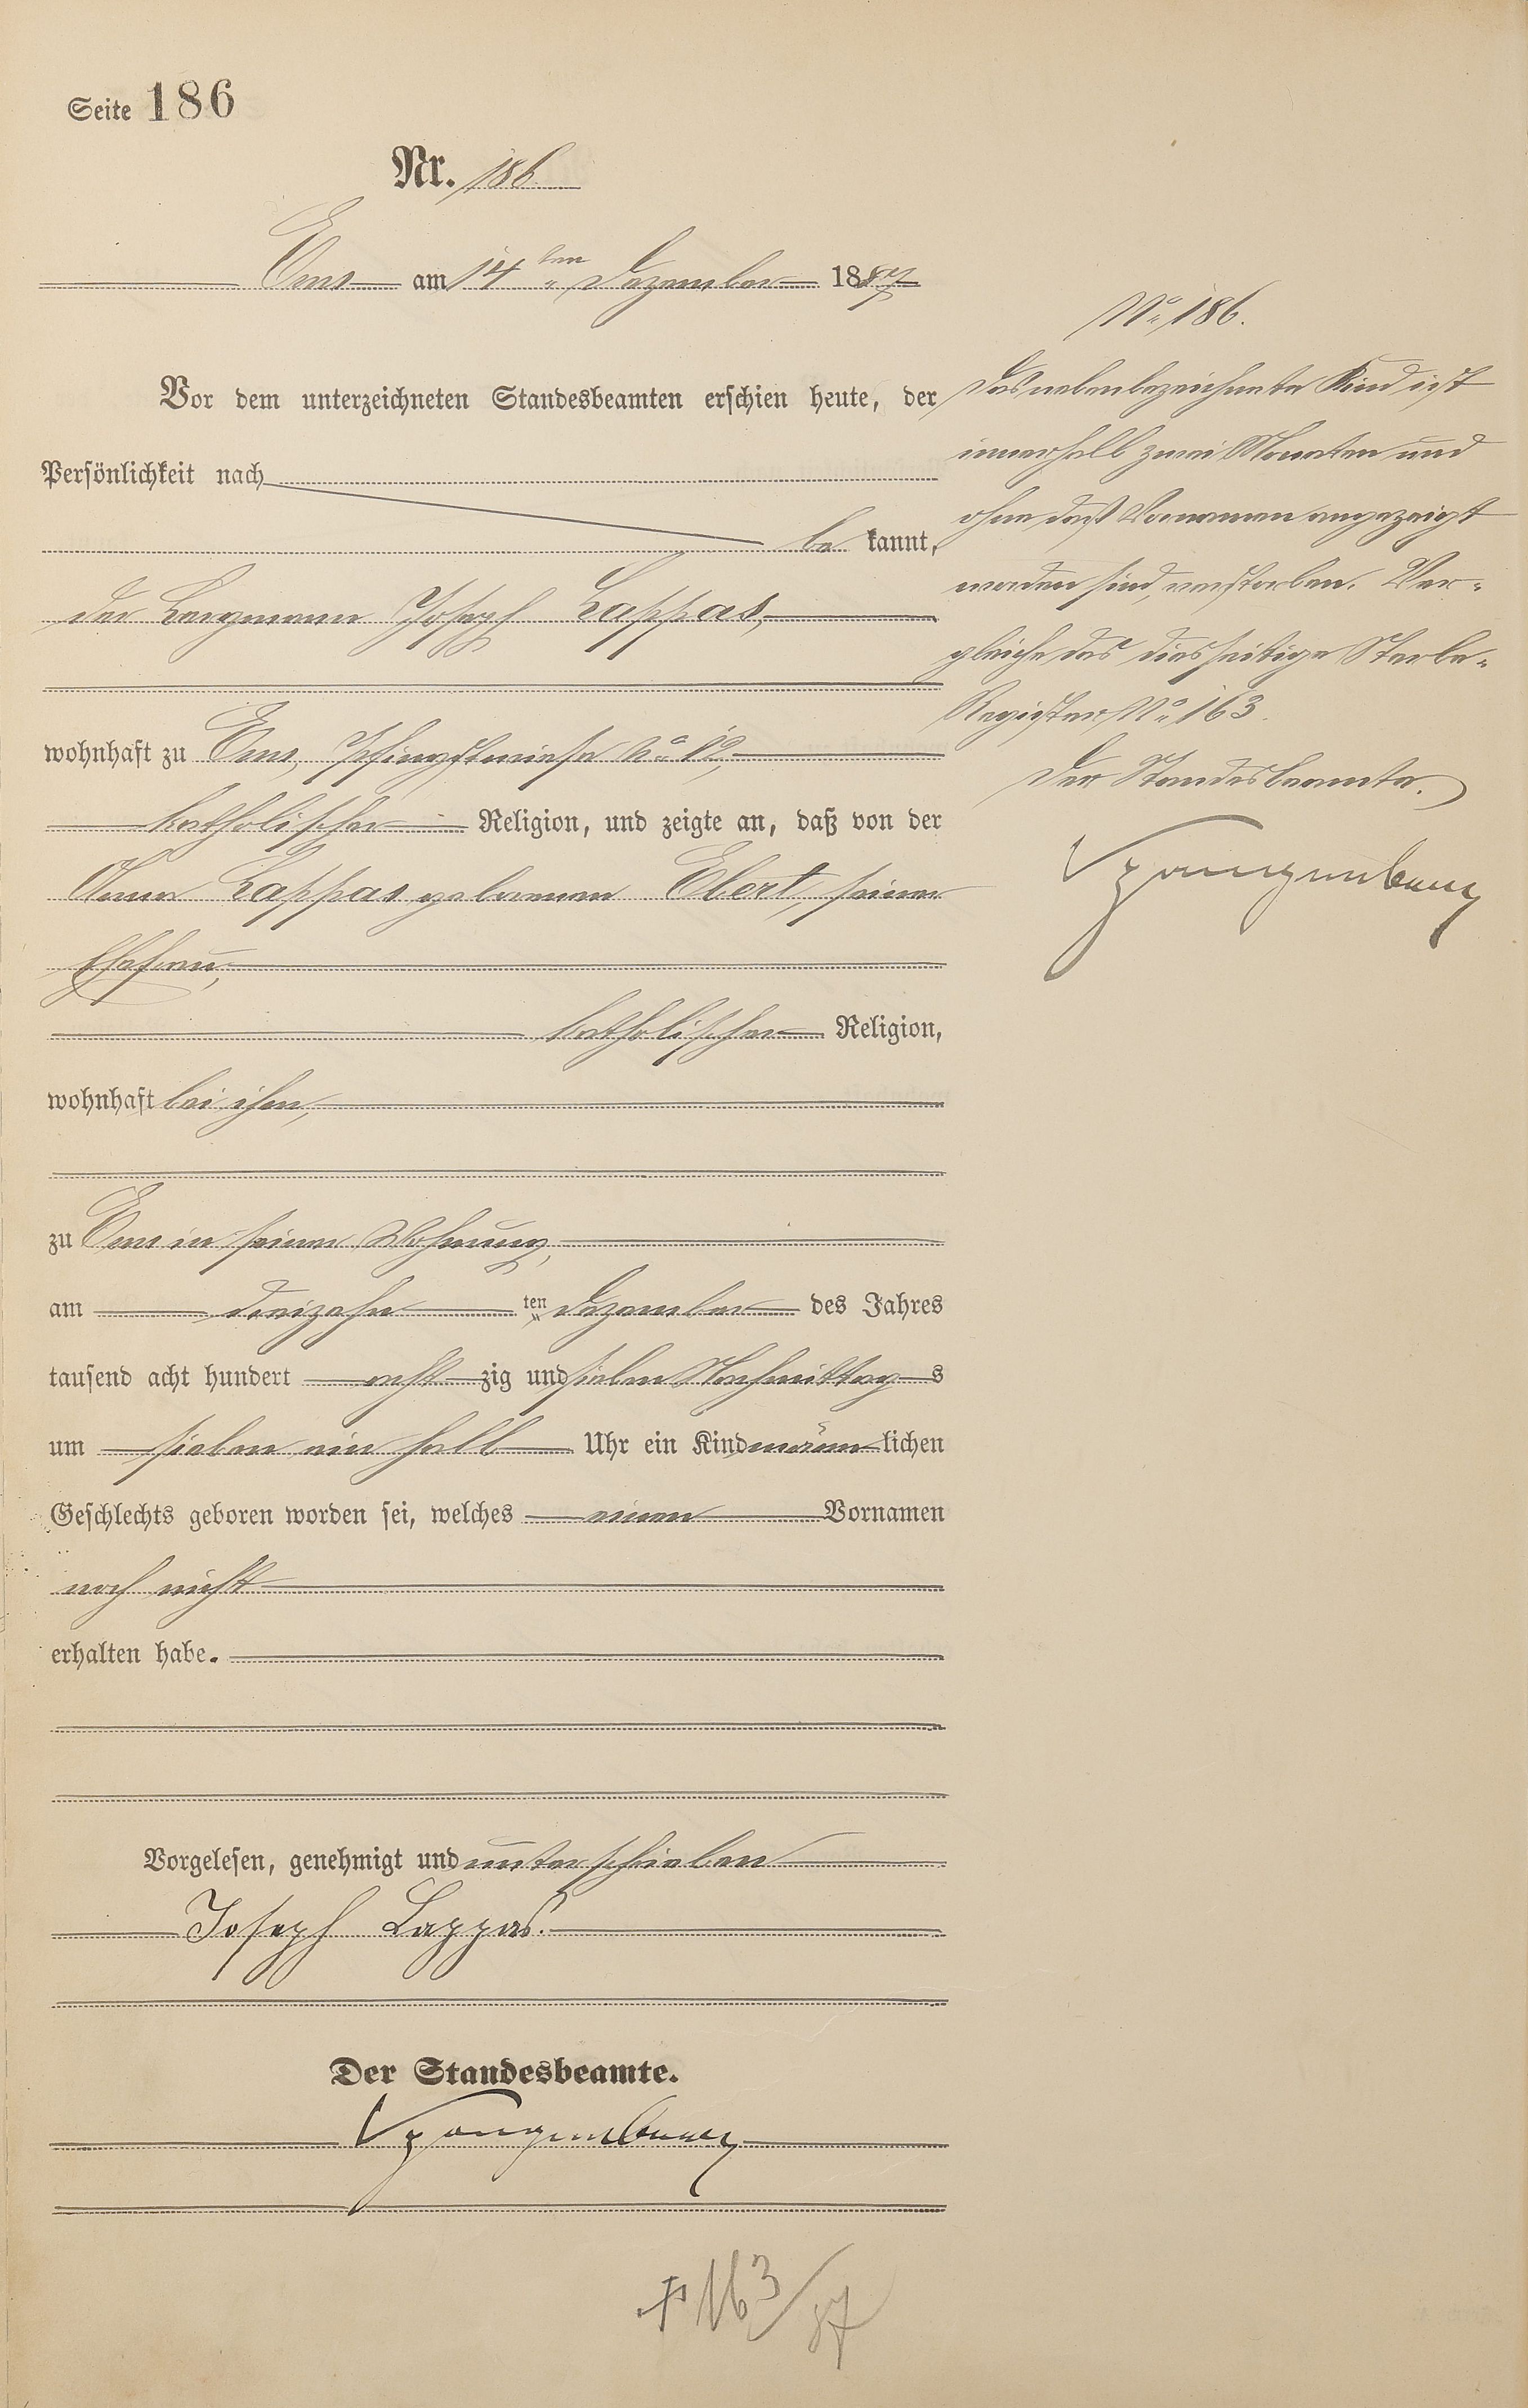 Seite 186
Nr. 186
Ems am 14ten Dezember 1887
Vor dem unterzeichneten Standesbeamten erschien heute, der
Persönlichkeit nach
be kannt,
der Bergmann Joseph Lappas,
wohnhaft zu Ems, Pfingstwiese No 12,
katholischer Religion, und zeigte an, daß von der
Anna Lappas geborenen Ebert, seiner
Ehefrau,
katholischer Religion,
wohnhaft bei ihm,
zu Ems in seiner Wohnung,
am dreizehn ten Dezember des Jahres
tausend acht hundert acht zig und sieben Nachmittag s
um sieben ein halb Uhr ein Kind männ lichen
Geschlechts geboren worden sei, welches einen Vornamen
noch nicht
erhalten habe.
Vorgelesen, genehmigt und unterschrieben
Joseph Lappas.
Der Standesbeamte.
No 186.
Das nebenbezeichnete Kind ist
innerhalb zwei Monaten und
ohne daß Vornamen angezeigt
worden sind, verstorben. Ver-
gleiche das diesseitige Sterbe-
Register No 163.
Der Standesbeamte.
163/87